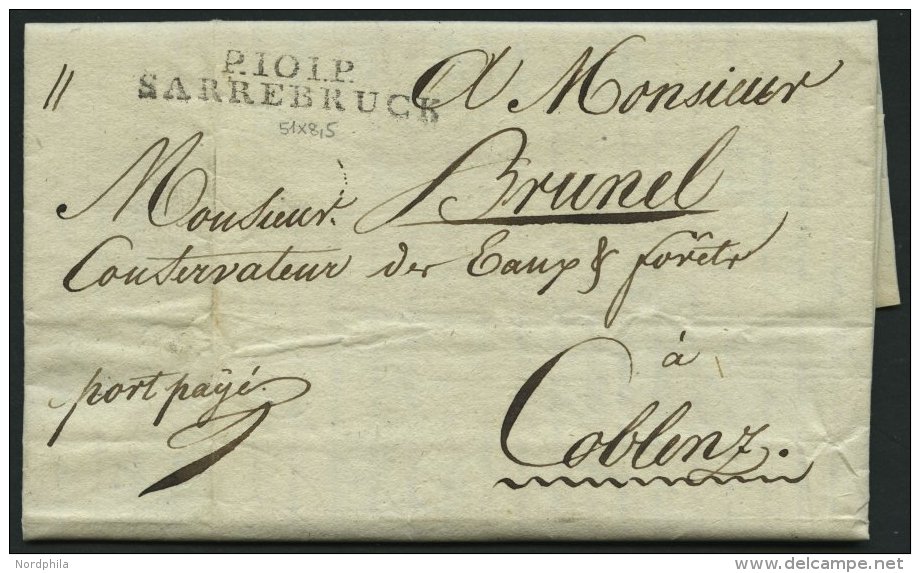 P.101.P.
SARREBRUCK
51x8,5
A Monsieur
Monsieur Brunel
Conservateur des Eaux & forêts
à
port payé.
Coblenz.
Nordphila
delcampe.net